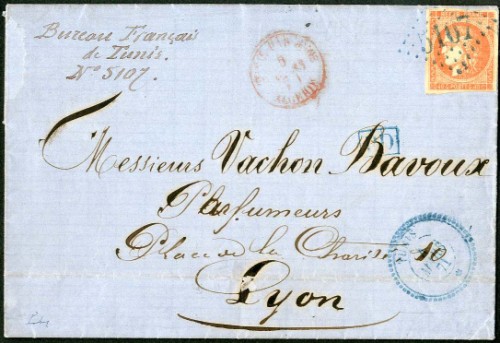 Bureau Français
de Tunis.
Nº 5107.
5107
ALGERIE
PD
Messieurs Vachon Bavoux
Parfumeurs
Place de la Charité 10
Lyon
TUNIS